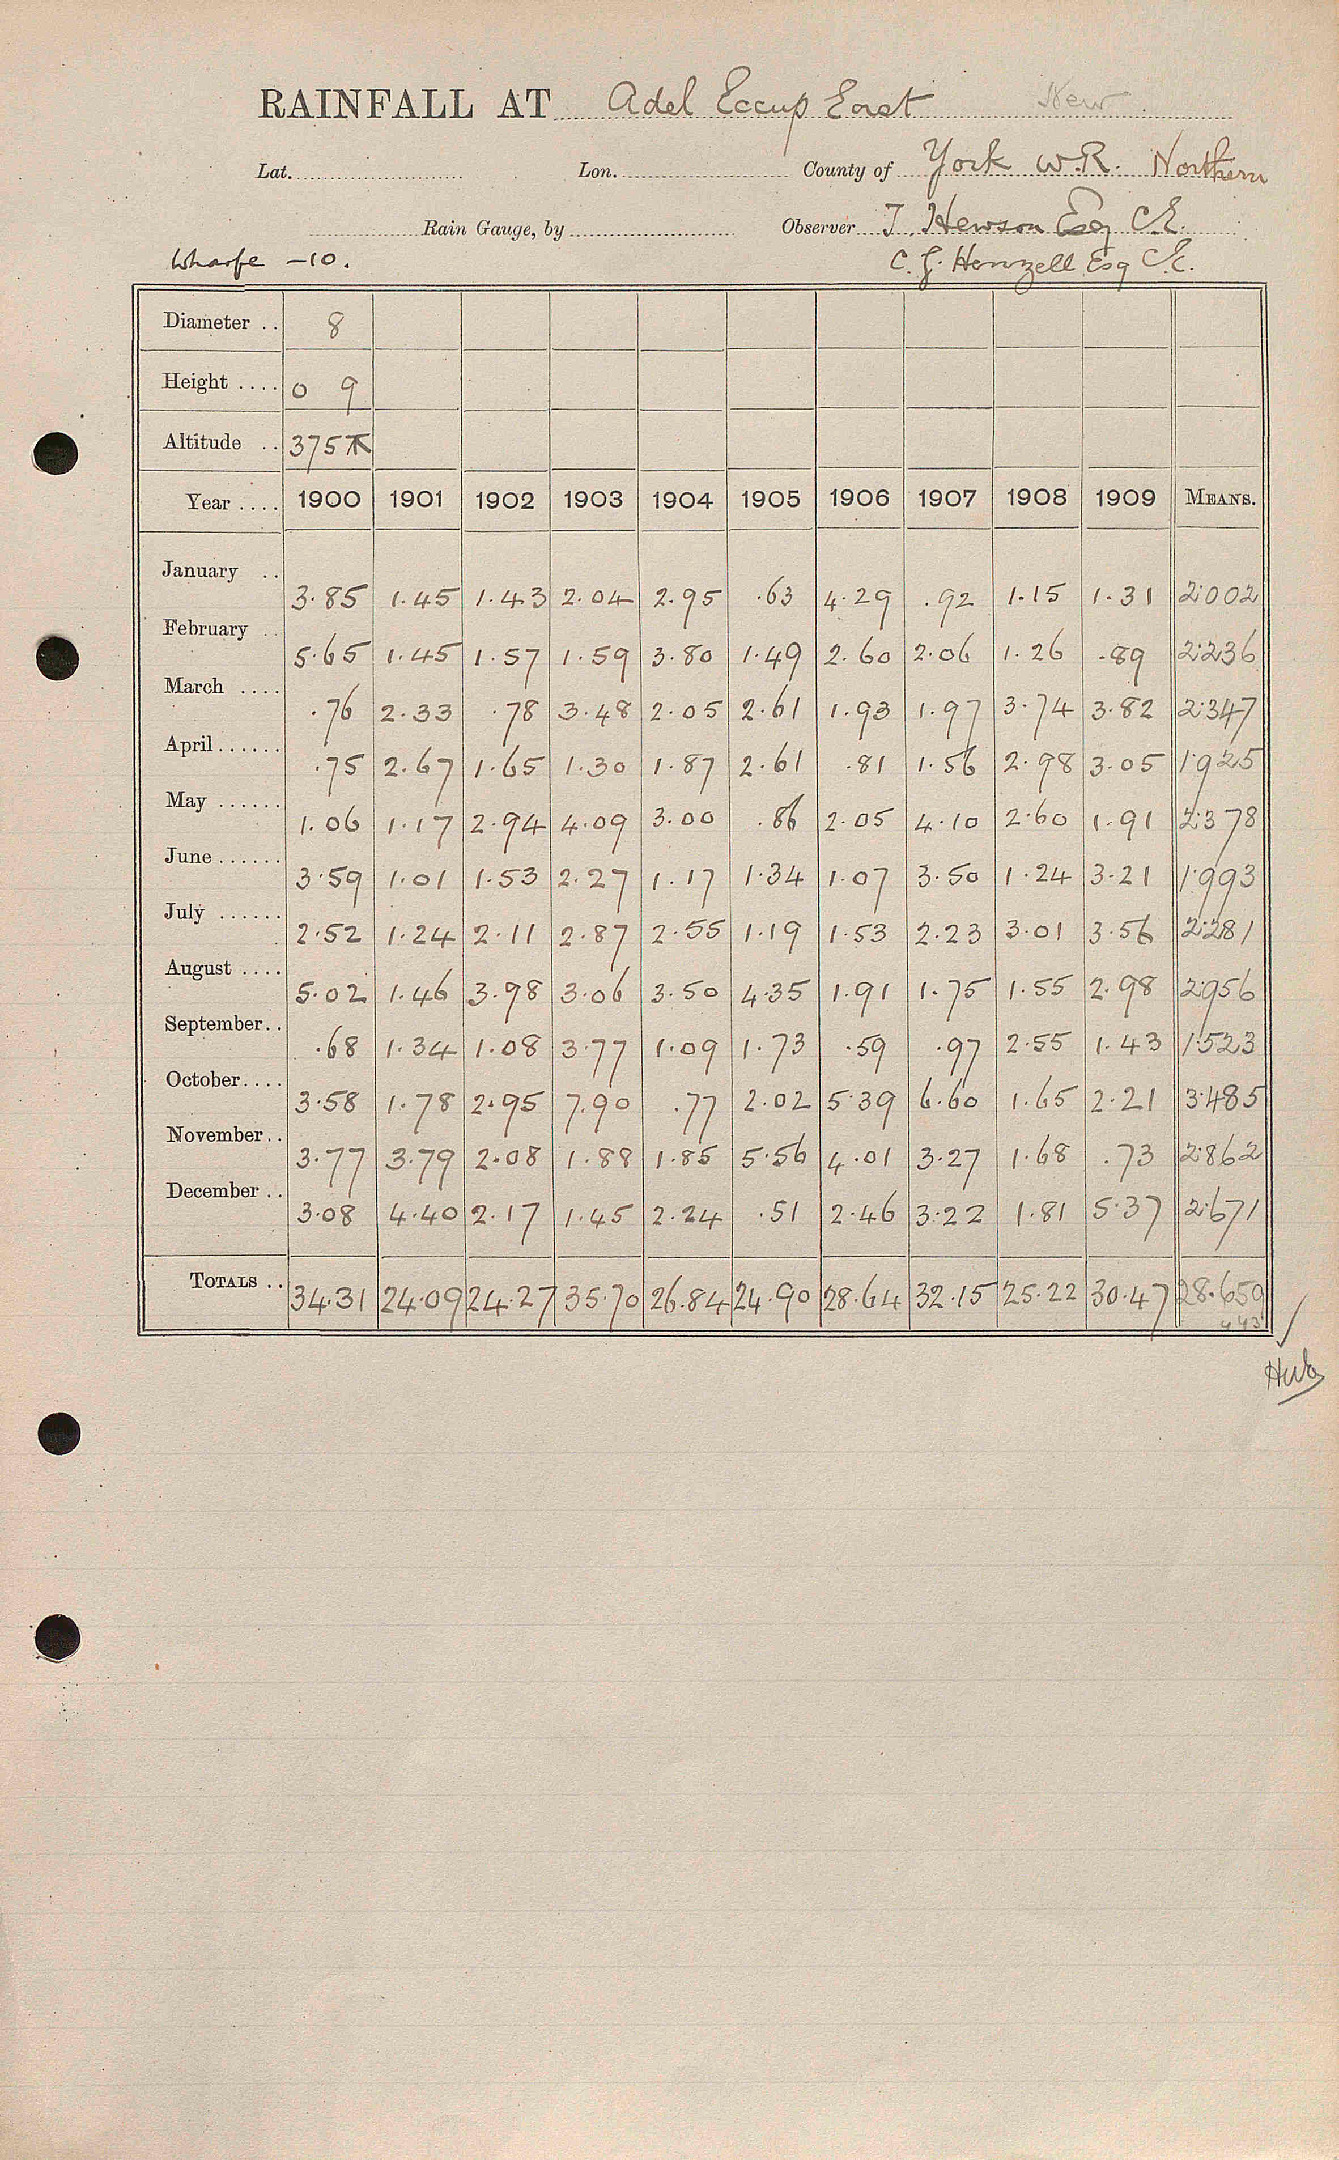 RAINFALL AT Adel Eccup East New
Lat. Lon. County of York W.R. Northern
Rain Gauge, by Observer T. Hewson Esq C.E.
Wharfe -10. C. G. Henzell Esq C.E.
Diameter .. 8
Height .... 0 9
Altitude .. 375
Year .... 1900 1901 1902 1903 1904 1905 1906 1907 1908 1909 MEANS.
January .. 3.85 1.45 1.43 2.04 2.95 .63 4.29 .92 1.15 1.31 2.002
February .. 5.65 1.45 1.57 1.59 3.80 1.49 2.60 2.06 1.26 .89 2.236
March .... .76 2.33 .78 3.48 2.05 2.61 1.93 1.97 3.74 3.82 2.347
April ...... .75 2.67 1.65 1.30 1.87 2.61 .81 1.56 2.98 3.05 1.925
May ...... 1.06 1.17 2.94 4.09 3.00 .86 2.05 4.10 2.60 1.91 2.378
June ...... 3.59 1.01 1.53 2.27 1.17 1.34 1.07 3.50 1.24 3.21 1.993
July ...... 2.52 1.24 2.11 2.87 2.55 1.19 1.53 2.23 3.01 3.56 2.281
August .... 5.02 1.46 3.98 3.06 3.50 4.35 1.91 1.75 1.55 2.98 2.956
September .. .68 1.34 1.08 3.77 1.09 1.73 .59 .97 2.55 1.43 1.523
October .... 3.58 1.78 2.95 7.90 .77 2.02 5.39 6.60 1.65 2.21 3.485
November .. 3.77 3.79 2.08 1.88 1.85 5.56 4.01 3.27 1.68 .73 2.862
December .. 3.08 4.40 2.17 1.45 2.24 .51 2.46 3.22 1.81 5.37 2.671
TOTALS .. 34.31 24.09 24.27 35.70 26.84 24.90 28.64 32.15 25.22 30.47 28.659